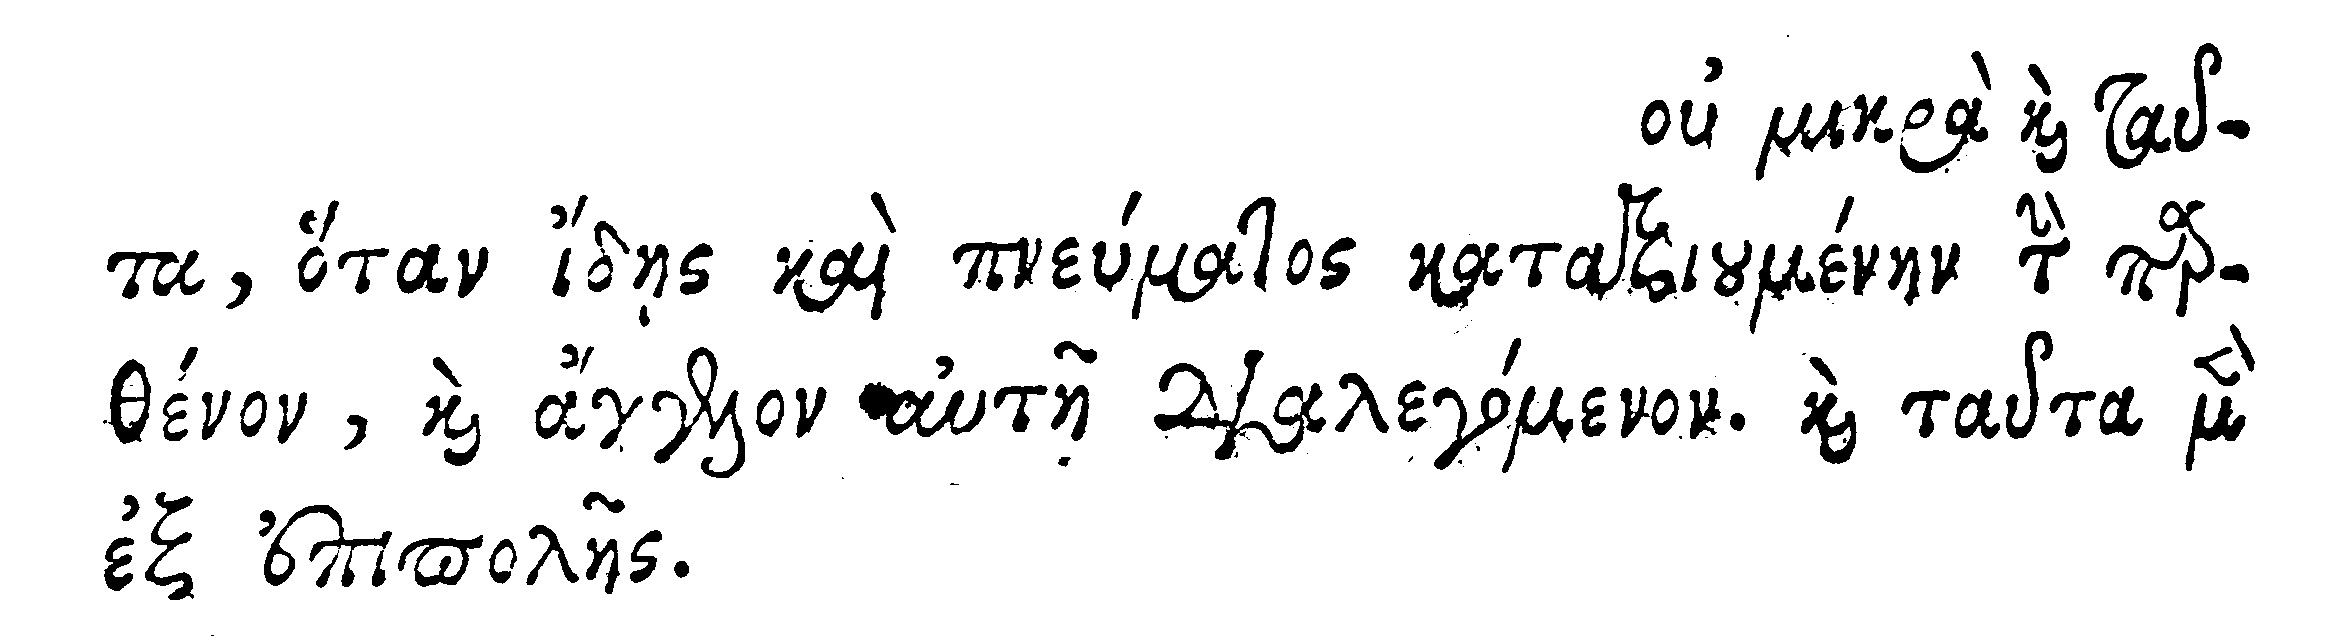 οὐ μικρὰ καὶ ταῦ-
τα, ὅταν ἴδῃς καὶ πνεύματος καταξιουμένην τὴν παρ-
θένον, καὶ ἄγγελον αὐτῇ διαλεγόμενον. καὶ ταῦτα μὲν
ἐξ ἐπιπολῆς.